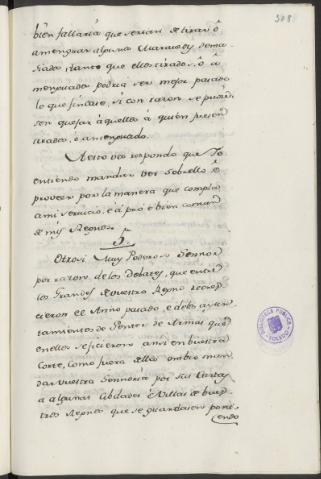 508
bien fallaria que serian de tirar ó
amenguar algunos Marauedis dema-
siados, tanto que ellos tirado, ó a
menguado podria ser mejor pagado
lo que fincase, si con razon se pudie
sen quejar aquellos a quien fuesen
tirados, ó amenguado.
A esto vos respondo que Yo
entiendo mandar ver sobrello, é
proveer por la manera que cumpla
a mi servicio, e á pró e bien comun
de mis Regnos.
5.
Otrosi Muy Poderoso Sennor
por razon de los Debates, que entre
los Grandes de vuestro Regno recres-
cieron el Anno pasado, e de los ayun-
tamientos de Gentes de Armas que
en ellos se ficieron en vuestra
Corte, como fuera della ombio man
dar Vuestra Sennoria por sus Cartas
a algunas Cibdades e Villas de vues-
tros Regnos que se guardasen ponie
endo
BIBLIOTECA PUBLICA
TOLEDO